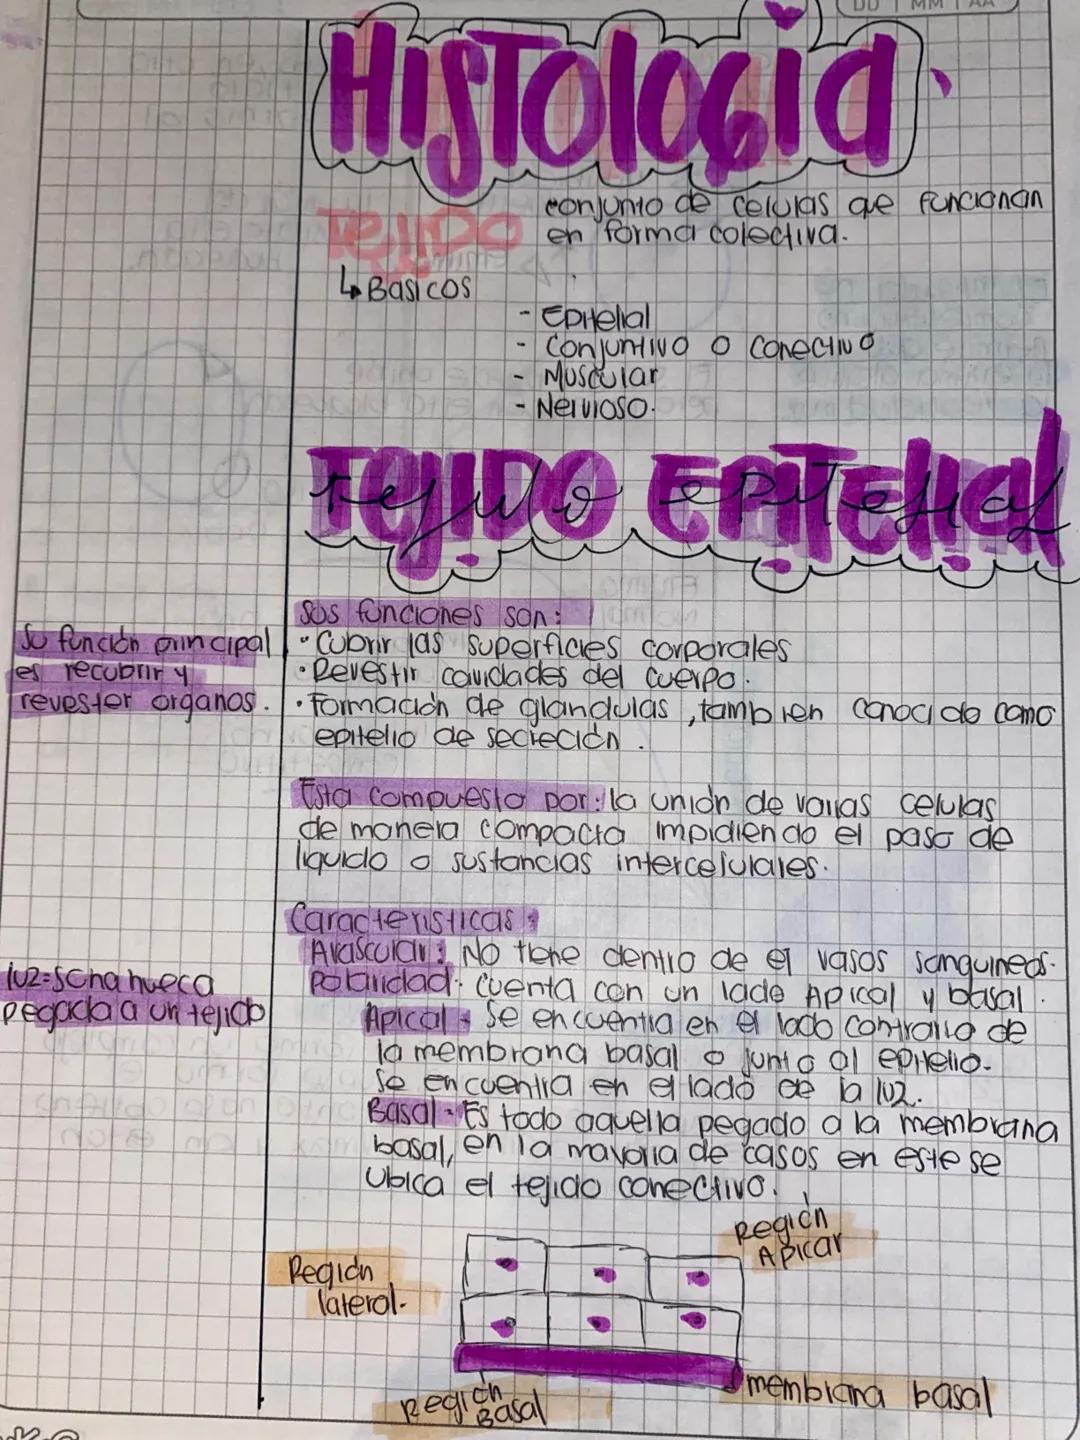 DD MM AA
Histologia
Tejido
conjunto de celulas que funcionan
en forma colectiva.
↳ Basicos
- Epitelial
- Conjuntivo o conectivo
- Muscular
- Nervioso.
Tejido Epitelial
tejido epitelial
Sus funciones son:
• Cubrir las superficies corporales
• Revestir cavidades del cuerpo.
• Formación de glandulas, tambien conocido como
epitelio de secreción.
Su función principal
es recubrir y
revester organos.
Esta compuesto por: la unión de varias celulas
de manera compacta impidiendo el paso de
liquido o sustancias intercelulares.
Caracteristicas:
Avascular: No tiene dentro de el vasos sanguineos.
Polaridad: Cuenta con un lado Apical y basal.
luz = zona hueca
pegada a un tejido
Apical: Se encuentra en el lado contrario de
la membrana basal o junto al epitelio.
Se encuentra en el lado de la luz.
Basal: Es todo aquella pegado a la membrana
basal, en la mayoria de casos en este se
ubica el tejido conectivo.
Región
Apicar
Región
lateral.
membrana basal
Región
Basal